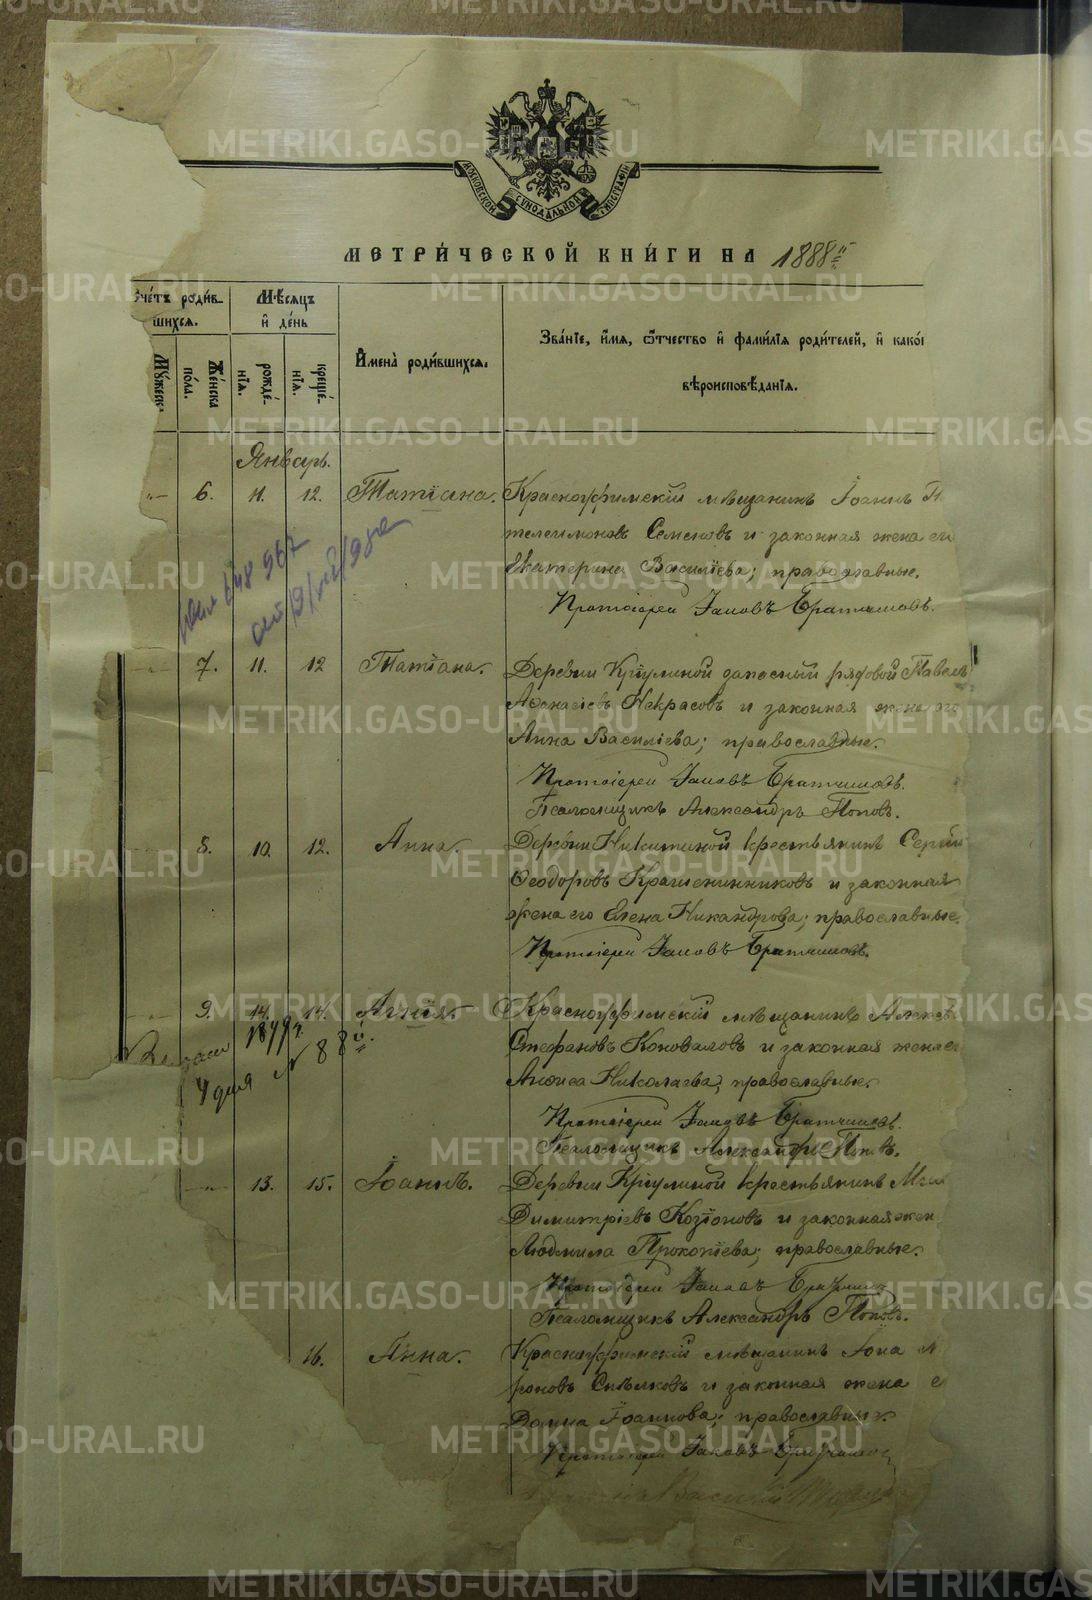 МОСКОВСКОЙ СѴНОДАЛЬНОЙ ТИПОГРАФІИ
МЕТРИ́ЧЕСКОЙ КНИ́ГИ НА 1888й
счéтъ роди́в-
шихся.
Мѣ́сяцъ
и҆ де́нь
Мꙋ́жеск
Же́нска
по́ла.
рожде́-
нїѧ.
креще́-
нїѧ.
И҆мена̀ роди́вшихсѧ.
Зва́нїе, и҆́мѧ, ѻ҆́тчество и҆ фами́лїѧ роди́телей, и҆ како́
вѣроисповѣ́данїѧ.
Январь.
6. 11. 12. Татіана. Красноуфимскій мѣщанинъ Іоаннъ П
телеимоновъ Семеновъ и законная жена ег
Екатерина Васильева; православные.
Протоіерей Іаковъ Братчиковъ.
7. 11. 12 Татіана. Деревни Криулиной запасный рядовой Павелъ
Аѳанасіевъ Некрасовъ и законная жена его
Анна Василіева; православные.
Протоіерей Іаковъ Братчиковъ.
Псаломщикъ Александръ Поповъ.
8. 10. 12. Анна. Деревни Никитиной крестьянинъ Сергій
Ѳеодоровъ Крашенинниковъ и законная
жена его Елена Никандрова; православные.
Протоіерей Іаковъ Братчиковъ.
9. 14. 14. Агнія. Красноуфимскій мѣщанинъ Алексѣй
Стефановъ Коноваловъ и законная жена ег
Анфиса Николаева; православные.
Протоіерей Іаковъ Братчиковъ.
Псаломщикъ Александръ Поповъ.
4 дня № 88й
13. 15. Іоаннъ. Деревни Криулиной крестьянинъ
Димитріевъ Козіоновъ и законная жен
Людмила Прокопіева; православные.
Протоіерей Іаковъ Братчик
Псаломщикъ Александръ Поповъ.
16. Анна. Красноуфимскій мѣщанинъ Іона М
роновъ Снѣлковъ и законная жена е
Домна Іоаннова; православные.
Протоіерей Іаковъ Братчиков
Василій
METRIKI.GASO-URAL.RU